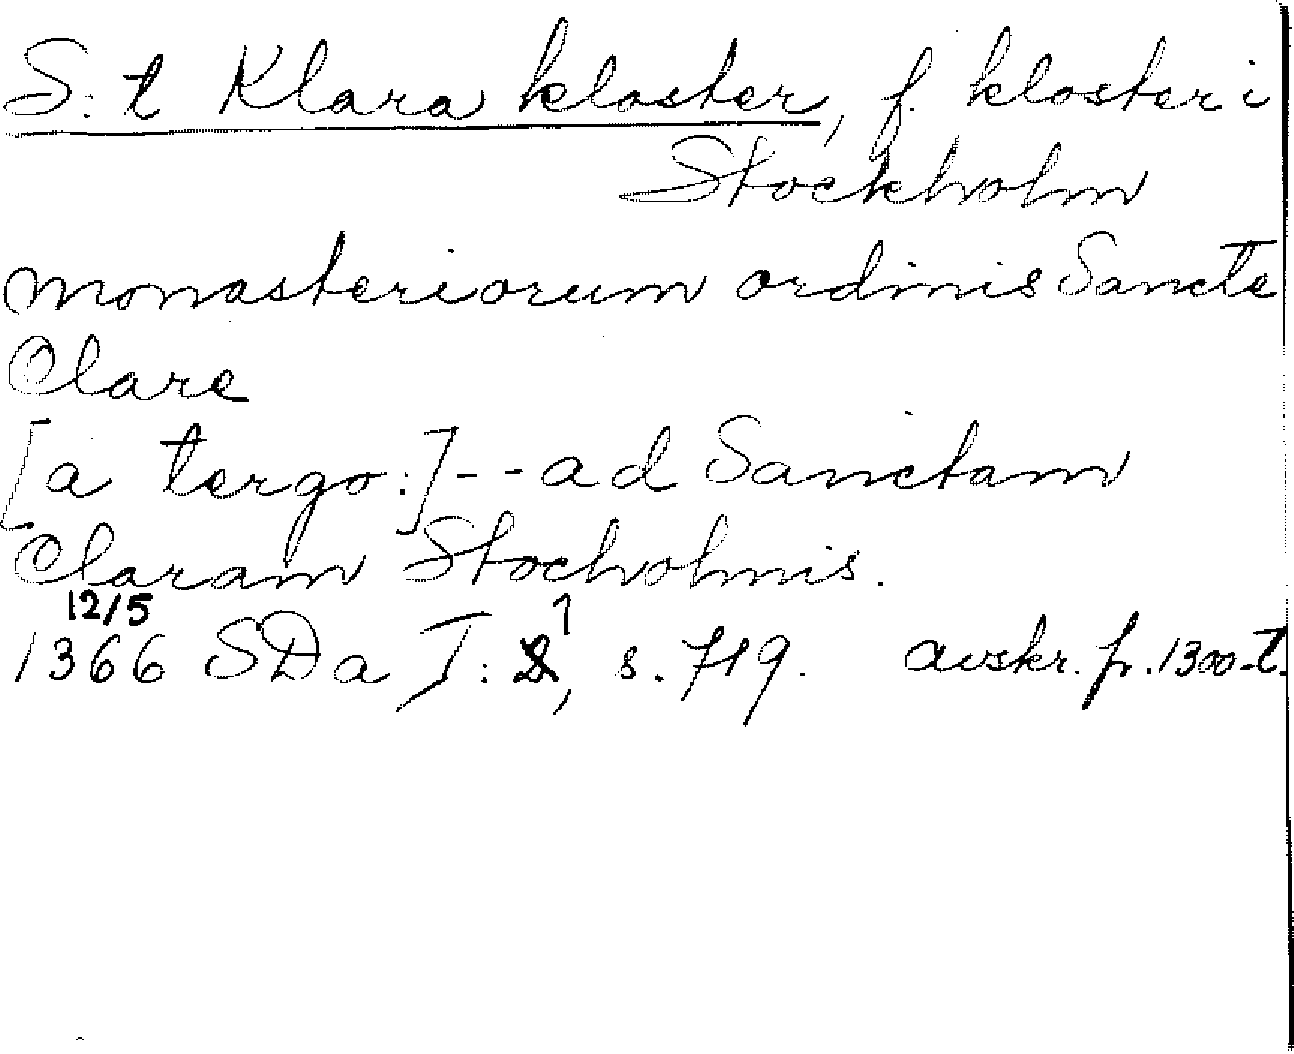 S:t Klara kloster, f. kloster i
Stockholm
monasteriorum ordinis Sancte
Clare
[a tergo:] -- ad Sanctam
Claram Stocholmis.
12/5
1366 SDa I: 1, s. 719. avskr. fr. 1300-t.